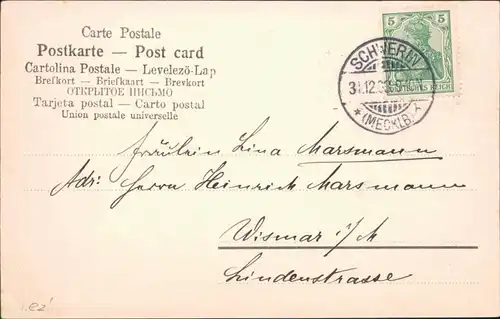 Carte Postale
Postkarte — Post card
Cartolina Postale — Levelezö-Lap
Brefkort — Briefkaart — Brevkort
ОТКРЫТОЕ ПИСЬМО
Tarjeta postal — Carto postal
Union postale universelle
5 5
REICH
SCHWERIN
31.12.
* (MECKLB.)
Fräulein Lina Marsmann
Adr: Herrn Heinrich Marsmann
Wismar i/M
Lindenstrasse